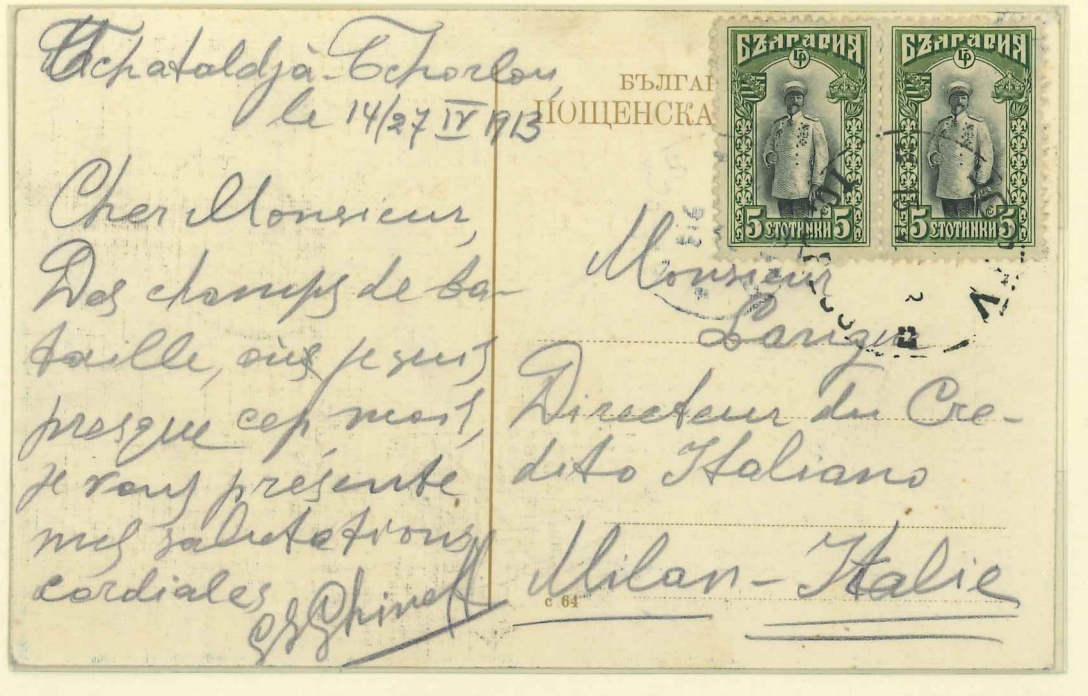 Tchataldjà-Tchorlou,
le 14/27 IV 1913
Cher Monsieur,
Des champs de ba-
taille, où je suis
presque cep mois,
je vous présente
mes salutations
cordiales
БЪЛГАР
ПОЩЕНСКА
БЪЛГАРИЯ
5 СТОТИНКИ 5
БЪЛГАРИЯ
5 СТОТИНКИ 5
Monsieur
Directeur du Cre-
dito Italiano
Milan-Italie
с 64